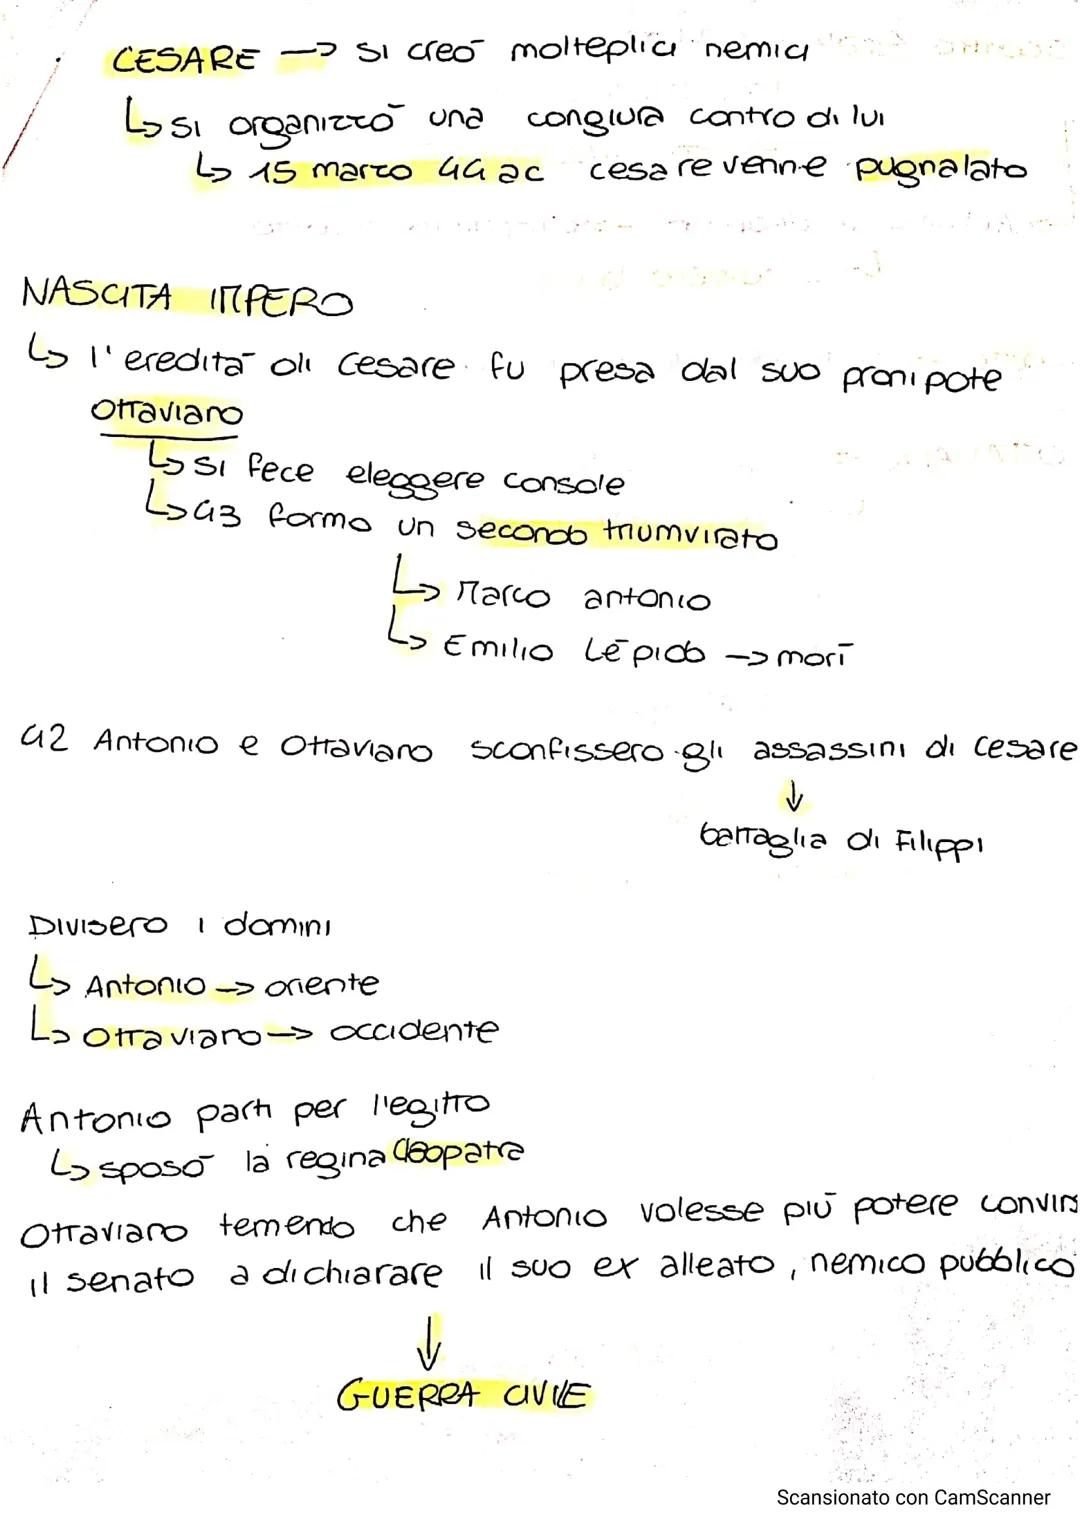 CESARE → si creò molteplici nemici
↳ si organizzò una congiura contro di lui
↳ 15 marzo 44 ac cesare venne pugnalato
NASCITA IMPERO
↳ l'eredità di Cesare fu presa dal suo pronipote
Ottaviano
↳ si fece eleggere console
↳ 43 formo un secondo triumvirato
↳ Marco antonio
↳ Emilio Lèpido → morì
42 Antonio e Ottaviano sconfissero gli assassini di Cesare
↓
battaglia di Filippi
Divisero i domini
↳ Antonio → oriente
↳ Ottaviano → occidente
Antonio parti per l'egitto
↳ sposò la regina Cleopatra
Ottaviano temendo che Antonio volesse più potere convins
il senato a dichiarare il suo ex alleato, nemico pubblico
↓
GUERRA CIVILE
Scansionato con CamScanner